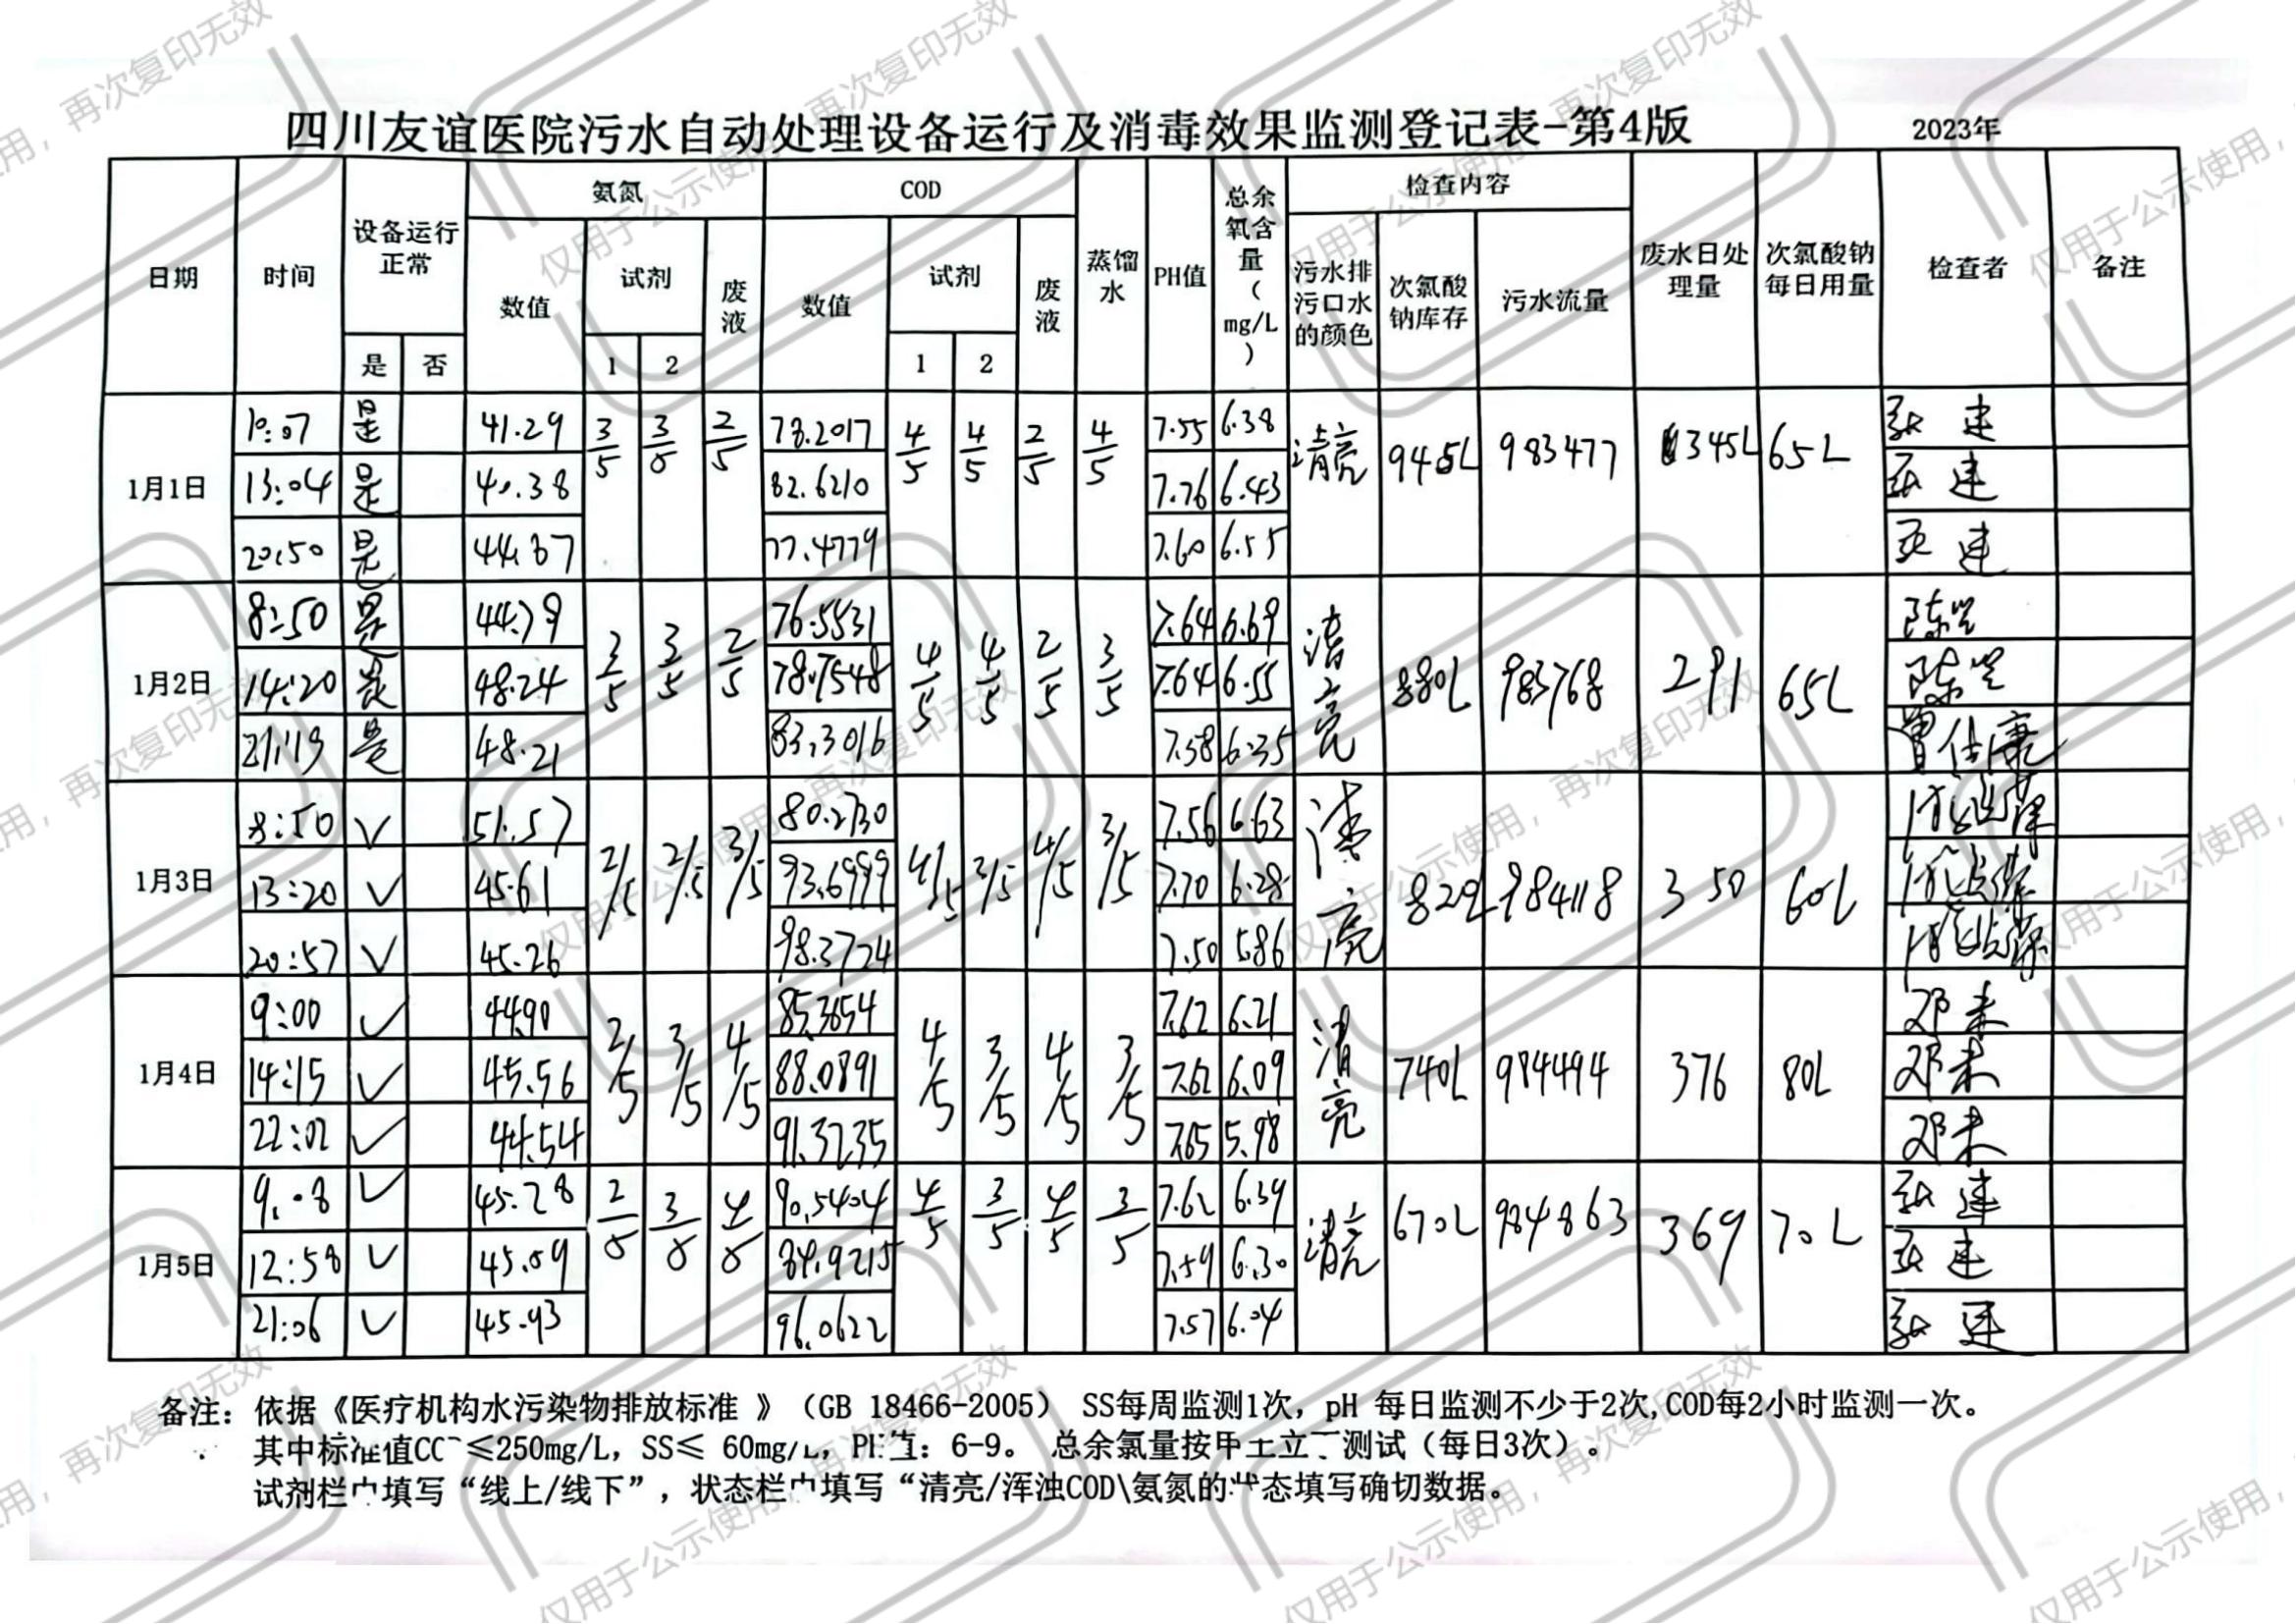 四川友谊医院污水自动处理设备运行及消毒效果监测登记表-第4版 2023年
日期 时间 设备运行正常 氨氮 COD 蒸馏水 PH值 总余氧含量（mg/L） 检查内容 废水日处理量 次氯酸钠每日用量 检查者 备注
数值 试剂 废液 数值 试剂 废液 污水排污口水的颜色 次氯酸钠库存 污水流量
是 否 1 2 1 2
1月1日 10:07 是 41.29 3/5 3/5 2/5 78.2017 4/5 4/5 2/5 4/5 7.55 6.38 清亮 945L 983477 345L 65L
13:04 是 40.38 82.6210 7.76 6.43
20:50 是 44.67 77.4779 7.60 6.55
1月2日 8:50 是 44.79 3/5 3/5 2/5 76.5531 4/5 4/5 2/5 3/5 7.64 6.69 清亮 880L 983768 291 65L
14:20 是 48.24 78.7548 7.64 6.55
21:13 是 48.21 83.3016 7.58 6.35
1月3日 8:50 ✓ 51.57 2/5 2/5 3/5 80.2730 4/5 3/5 4/5 3/5 7.56 6.63 清亮 820L 984118 350 60L
13:20 ✓ 45.61 93.6999 7.70 6.28
20:57 ✓ 45.26 98.3724 7.50 5.86
1月4日 9:00 ✓ 44.90 2/5 3/5 4/5 85.3654 4/5 3/5 4/5 3/5 7.62 6.21 清亮 740L 984494 376 80L
14:15 ✓ 45.56 88.0891 7.62 6.09
22:02 ✓ 44.54 91.3235 7.65 5.98
1月5日 9:08 ✓ 45.28 2/5 3/5 4/5 90.5404 4/5 3/5 4/5 3/5 7.62 6.39 清亮 670L 984863 369 70L
12:58 ✓ 45.09 84.9215 7.59 6.30
21:06 ✓ 45.93 96.0622 7.57 6.04
备注：依据《医疗机构水污染物排放标准 》（GB 18466-2005） SS每周监测1次，pH 每日监测不少于2次,COD每2小时监测一次。
其中标准值CO ≤250mg/L，SS≤ 60mg/L，PH值：6-9。 总余氯量按 测试（每日3次）。
试剂栏中填写“线上/线下”，状态栏中填写“清亮/浑浊COD\氨氮的状态填写确切数据。
仅用于公示使用，再次复印无效